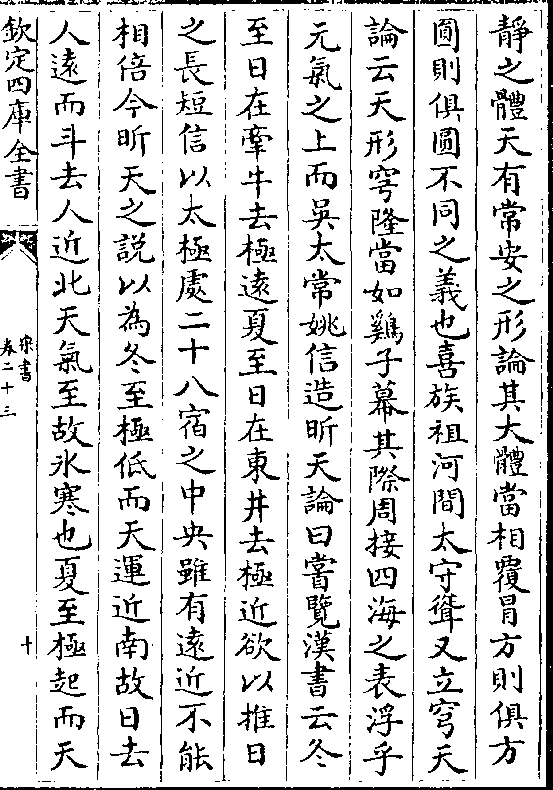 靜之體天有常安之形論其大體當相覆冒方則俱方
圓則俱圓不同之義也喜族祖河間太守聳又立穹天
論云天形穹隆當如鷄子幕其際周接四海之表浮乎
元氣之上而吳太常姚信造昕天論曰嘗覽漢書云冬
至日在牽牛去極遠夏至日在東井去極近欲以推日
之長短信以太極處二十八宿之中央雖有遠近不能
相倍今昕天之說以為冬至極低而天運近南故日去
人遠而斗去人近北天氣至故氷寒也夏至極起而天
欽定四庫全書
宋書
卷二十三
十